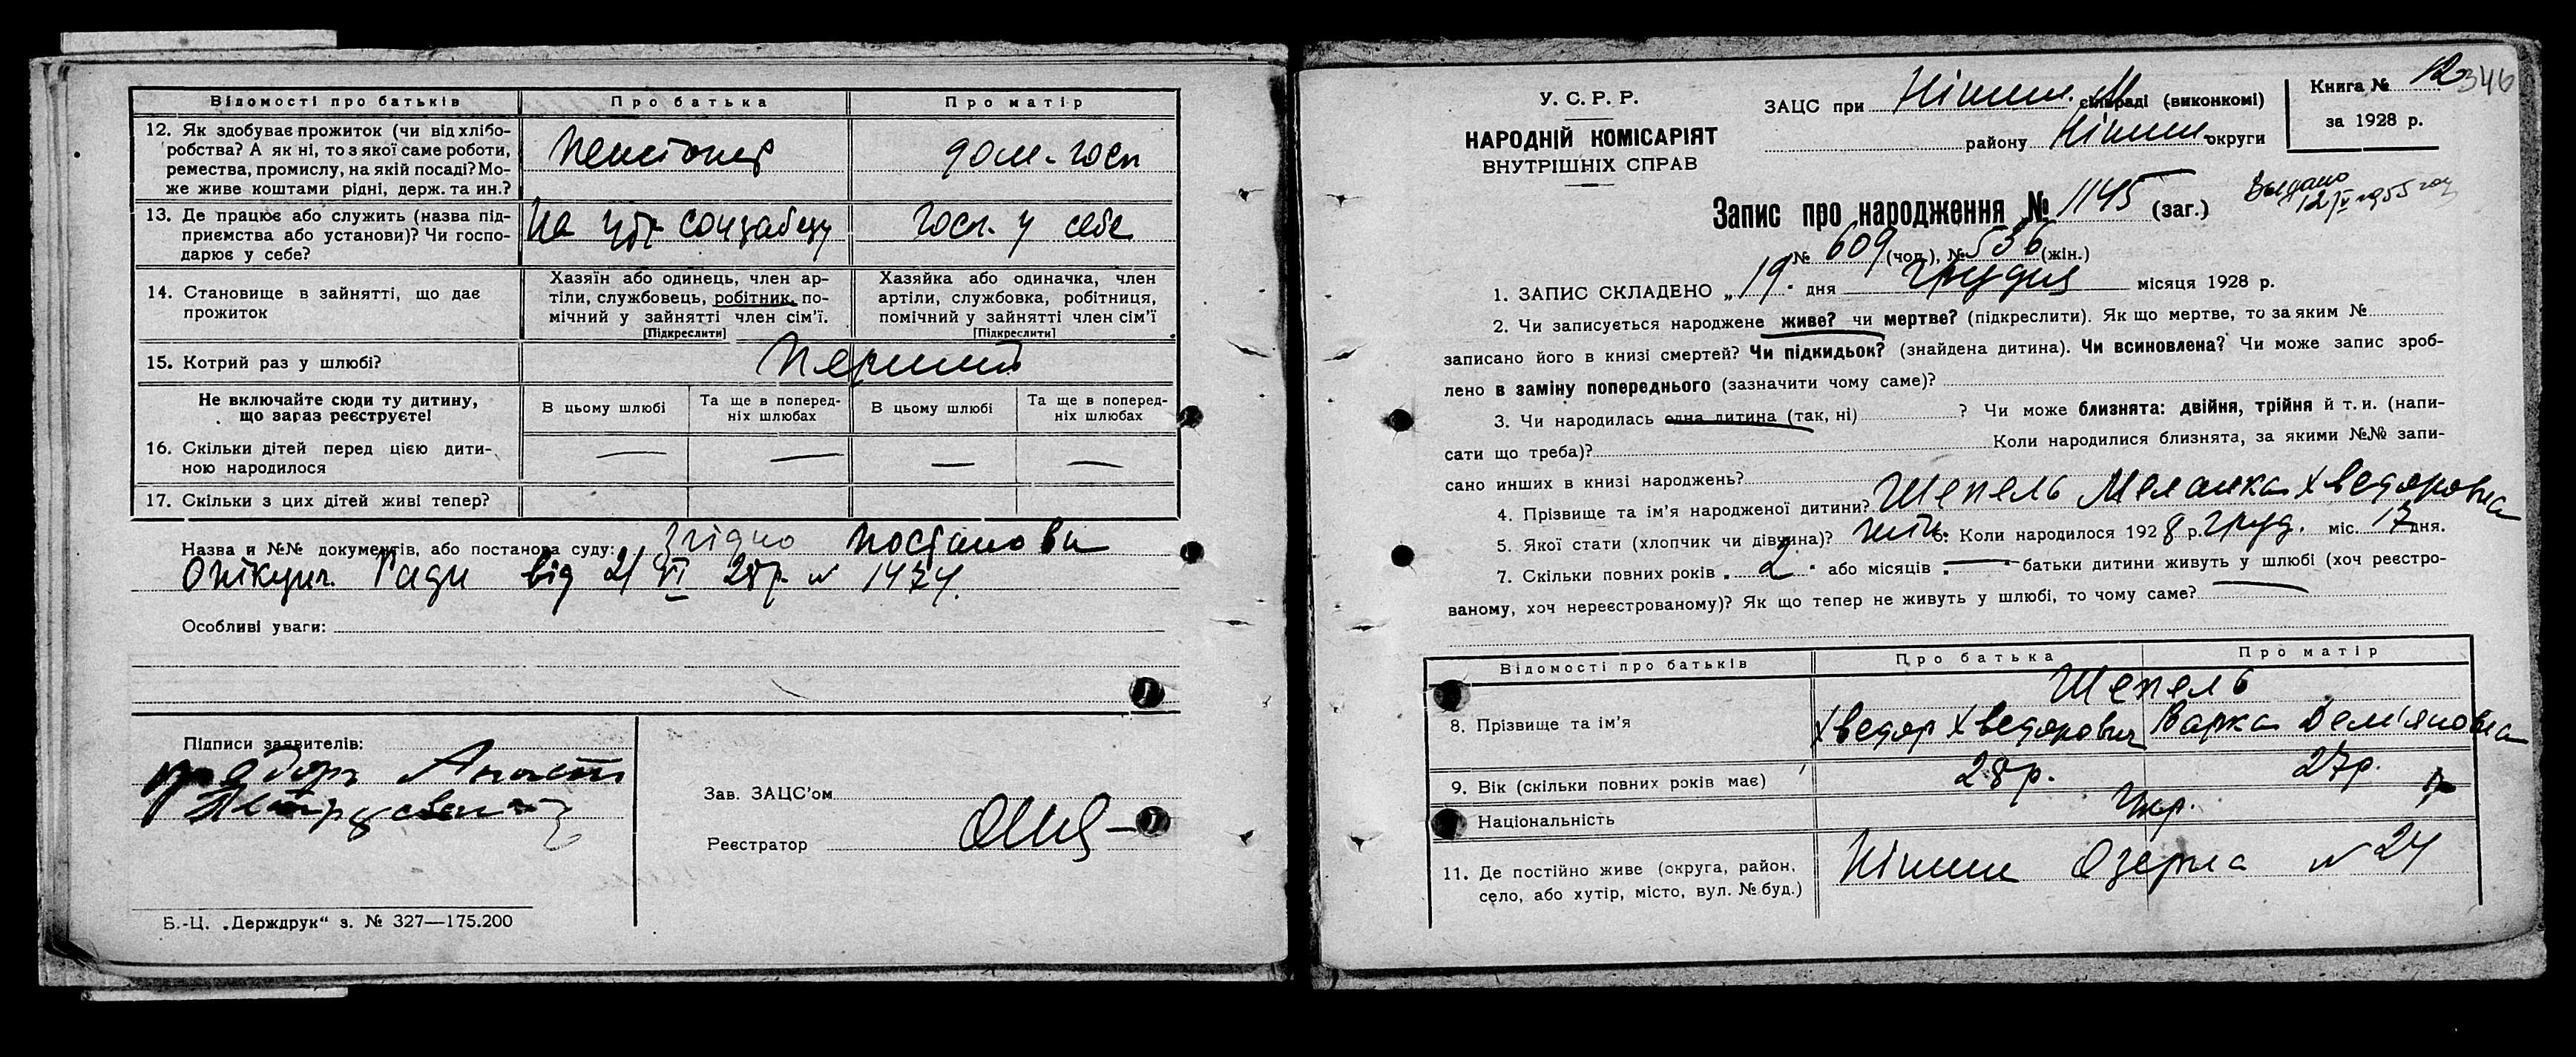 Відомості про батьків Про батька Про матір
12. Як здобуває прожиток (чи від хлібо-
робства? А як ні, то з якої саме роботи,
ремества, промислу, на якій посаді? Мо-
же живе коштами рідні, держ. та ин.?
Пенсіонер дом-госп
13. Де працює або служить (назва під-
приємства або установи)? Чи госпо-
дарює у себе?
На соцзабезу госп. у себе
14. Становище в зайнятті, що дає
прожиток
Хазяїн або одинець, член ар-
тіли, службовець, робітник, по-
мічний у зайнятті член сім'ї.
[Підкреслити]
Хазяйка або одиначка, член
артіли, службовка, робітниця,
помічний у зайнятті член сім'ї
[Підкреслити]
15. Котрий раз у шлюбі? Перший
Не включайте сюди ту дитину,
що зараз реєструєте!
В цьому шлюбі Та ще в поперед-
ніх шлюбах В цьому шлюбі Та ще в поперед-
ніх шлюбах
16. Скільки дітей перед цією дити-
ною народилося — — — —
17. Скільки з цих дітей живі тепер?
Назва и №№ документів, або постанова суду: згідно постанови
Опікунч. Ради від 21 VI 28р. № 1474.
Особливі уваги:
Підписи заявителів:
Зав. ЗАЦС'ом
Реєстратор
Б.-Ц. „Держдрук“ з. № 327—175.200
У. С. Р. Р.
НАРОДНІЙ КОМІСАРІЯТ
ВНУТРІШНІХ СПРАВ
ЗАЦС при Ніжин. М сільраді (виконкомі)
району Ніжин. округи
Книга № 12
346
за 1928 р.
Запис про народження № 1145 (заг.)
Выдано
12/V 1955 год
№ 609 (чол.), № 536 (жін.)
1. ЗАПИС СКЛАДЕНО „19“ дня Грудня місяця 1928 р.
2. Чи записується народжене живе? чи мертве? (підкреслити). Як що мертве, то за яким №
записано його в книзі смертей? Чи підкидьок? (знайдена дитина). Чи всиновлена? Чи може запис зроб-
лено в заміну попереднього (зазначити чому саме)?
3. Чи народилась одна дитина (так, ні) ? Чи може близнята: двійня, трійня й т. и. (напи-
сати що треба)? Коли народилися близнята, за якими №№ запи-
сано инших в книзі народжень?
4. Прізвище та ім'я народженої дитини? Шепель Меланка Хведоровна
5. Якої стати (хлопчик чи дівчина)? жін. 6. Коли народилося 1928 р. груд. міс. 17 дня.
7. Скільки повних років „2“ або місяців „—“ батьки дитини живуть у шлюбі (хоч реєстро-
ваному, хоч нереєстрованому)? Як що тепер не живуть у шлюбі, то чому саме? —
Відомості про батьків Про батька Про матір
Шепель
8. Прізвище та ім'я Хведор Хведорович Варка Дем'яновна
9. Вік (скільки повних років має) 28р. 27р.
Національність Укр.
11. Де постійно живе (округа, район,
село, або хутір, місто, вул. № буд.)
Ніжин Озерна № 24